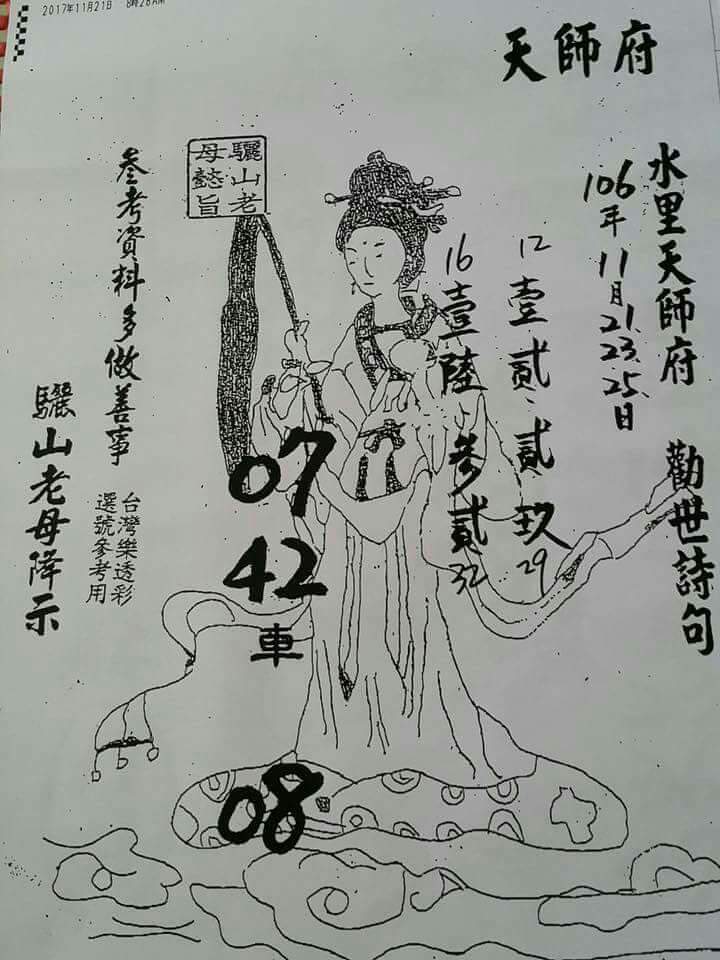 2017年11月21日 8時28AM
天師府
水里天師府 勸世詩句
106年11月21.23.25.日
12 壹貳、貳玖 29
16 壹陸、參貳 32
驪山老母懿旨
07
42
車
08
參考資料多做善事
台灣樂透彩
選號參考用
驪山老母降示